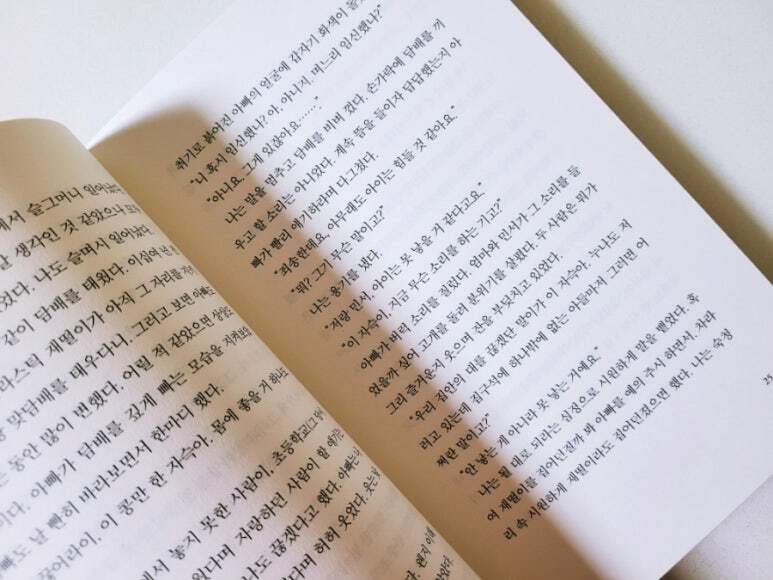 에서 슬그머니 일어났
날 생각인 것 같았으나
었다. 나도 슬며시 일어났다.
같이 담배를 태웠다. 이십여 년
라스틱 재떨이가 아직 그 자리를
랑 맞담배를 태우다니. 그리고 보면 아빠도
는 동안 많이 변했다. 어릴 적 같았으면 상상도
이다. 아빠가 담배를 깊게 빠는 모습을 지켜보
빠도 날 빤히 바라보면서 한마디 했다.
끊어라이, 이 콩만 한 자슥아. 몸에 좋을 거 하나도
에서 놓지 못한 사람이, 초등학교
있다며 자랑하던 사람이 할 얘기는
나도 끊겠다고 했다. 아빠는
다며 허허 웃었다. 웃는
취기로 붉어진 아빠의 얼굴에 갑자기 화색이 돌
"니 혹시 임신했나? 아, 아니지. 며느리 임신했나?"
"아니요. 그게 있잖아요……."
나는 말을 멈추고 담배를 비벼 껐다. 손가락에 담배를 끼
우고 할 소리는 아니었다. 계속 뜸을 들이자 답답했는지 아
빠가 빨리 얘기하라며 다그쳤다.
"죄송한데요. 아무래도 아이는 힘들 것 같아요."
"뭐? 그기 무슨 말이고?"
나는 용기를 냈다.
"저랑 민서, 아이는 못 낳을 거 같다고요."
"이 자슥이, 지금 무슨 소리를 하는 기고?"
아빠가 버럭 소리를 질렀다. 엄마와 민서가 그 소리를 들
었을까 싶어 고개를 돌려 분위기를 살폈다. 두 사람은 뭐가
그리 즐거운지 웃으며 잔을 부딪치고 있었다.
"우리 집안의 대를 끊겠단 말이가 이 자슥아. 누나도 저
러고 있는데 김구식에 하나밖에 없는 아들마저 그러면 어
쩌란 말이고?"
"안 낳는 게 아니라 못 낳는 거예요."
나는 될 대로 되라는 심정으로 시원하게 말을 뱉었다. 혹
여 재떨이를 집어던질까 봐 아빠를 예의 주시하면서. 차라
리 속 시원하게 재떨이라도 집어던졌으면 했다. 나는 숙청
25